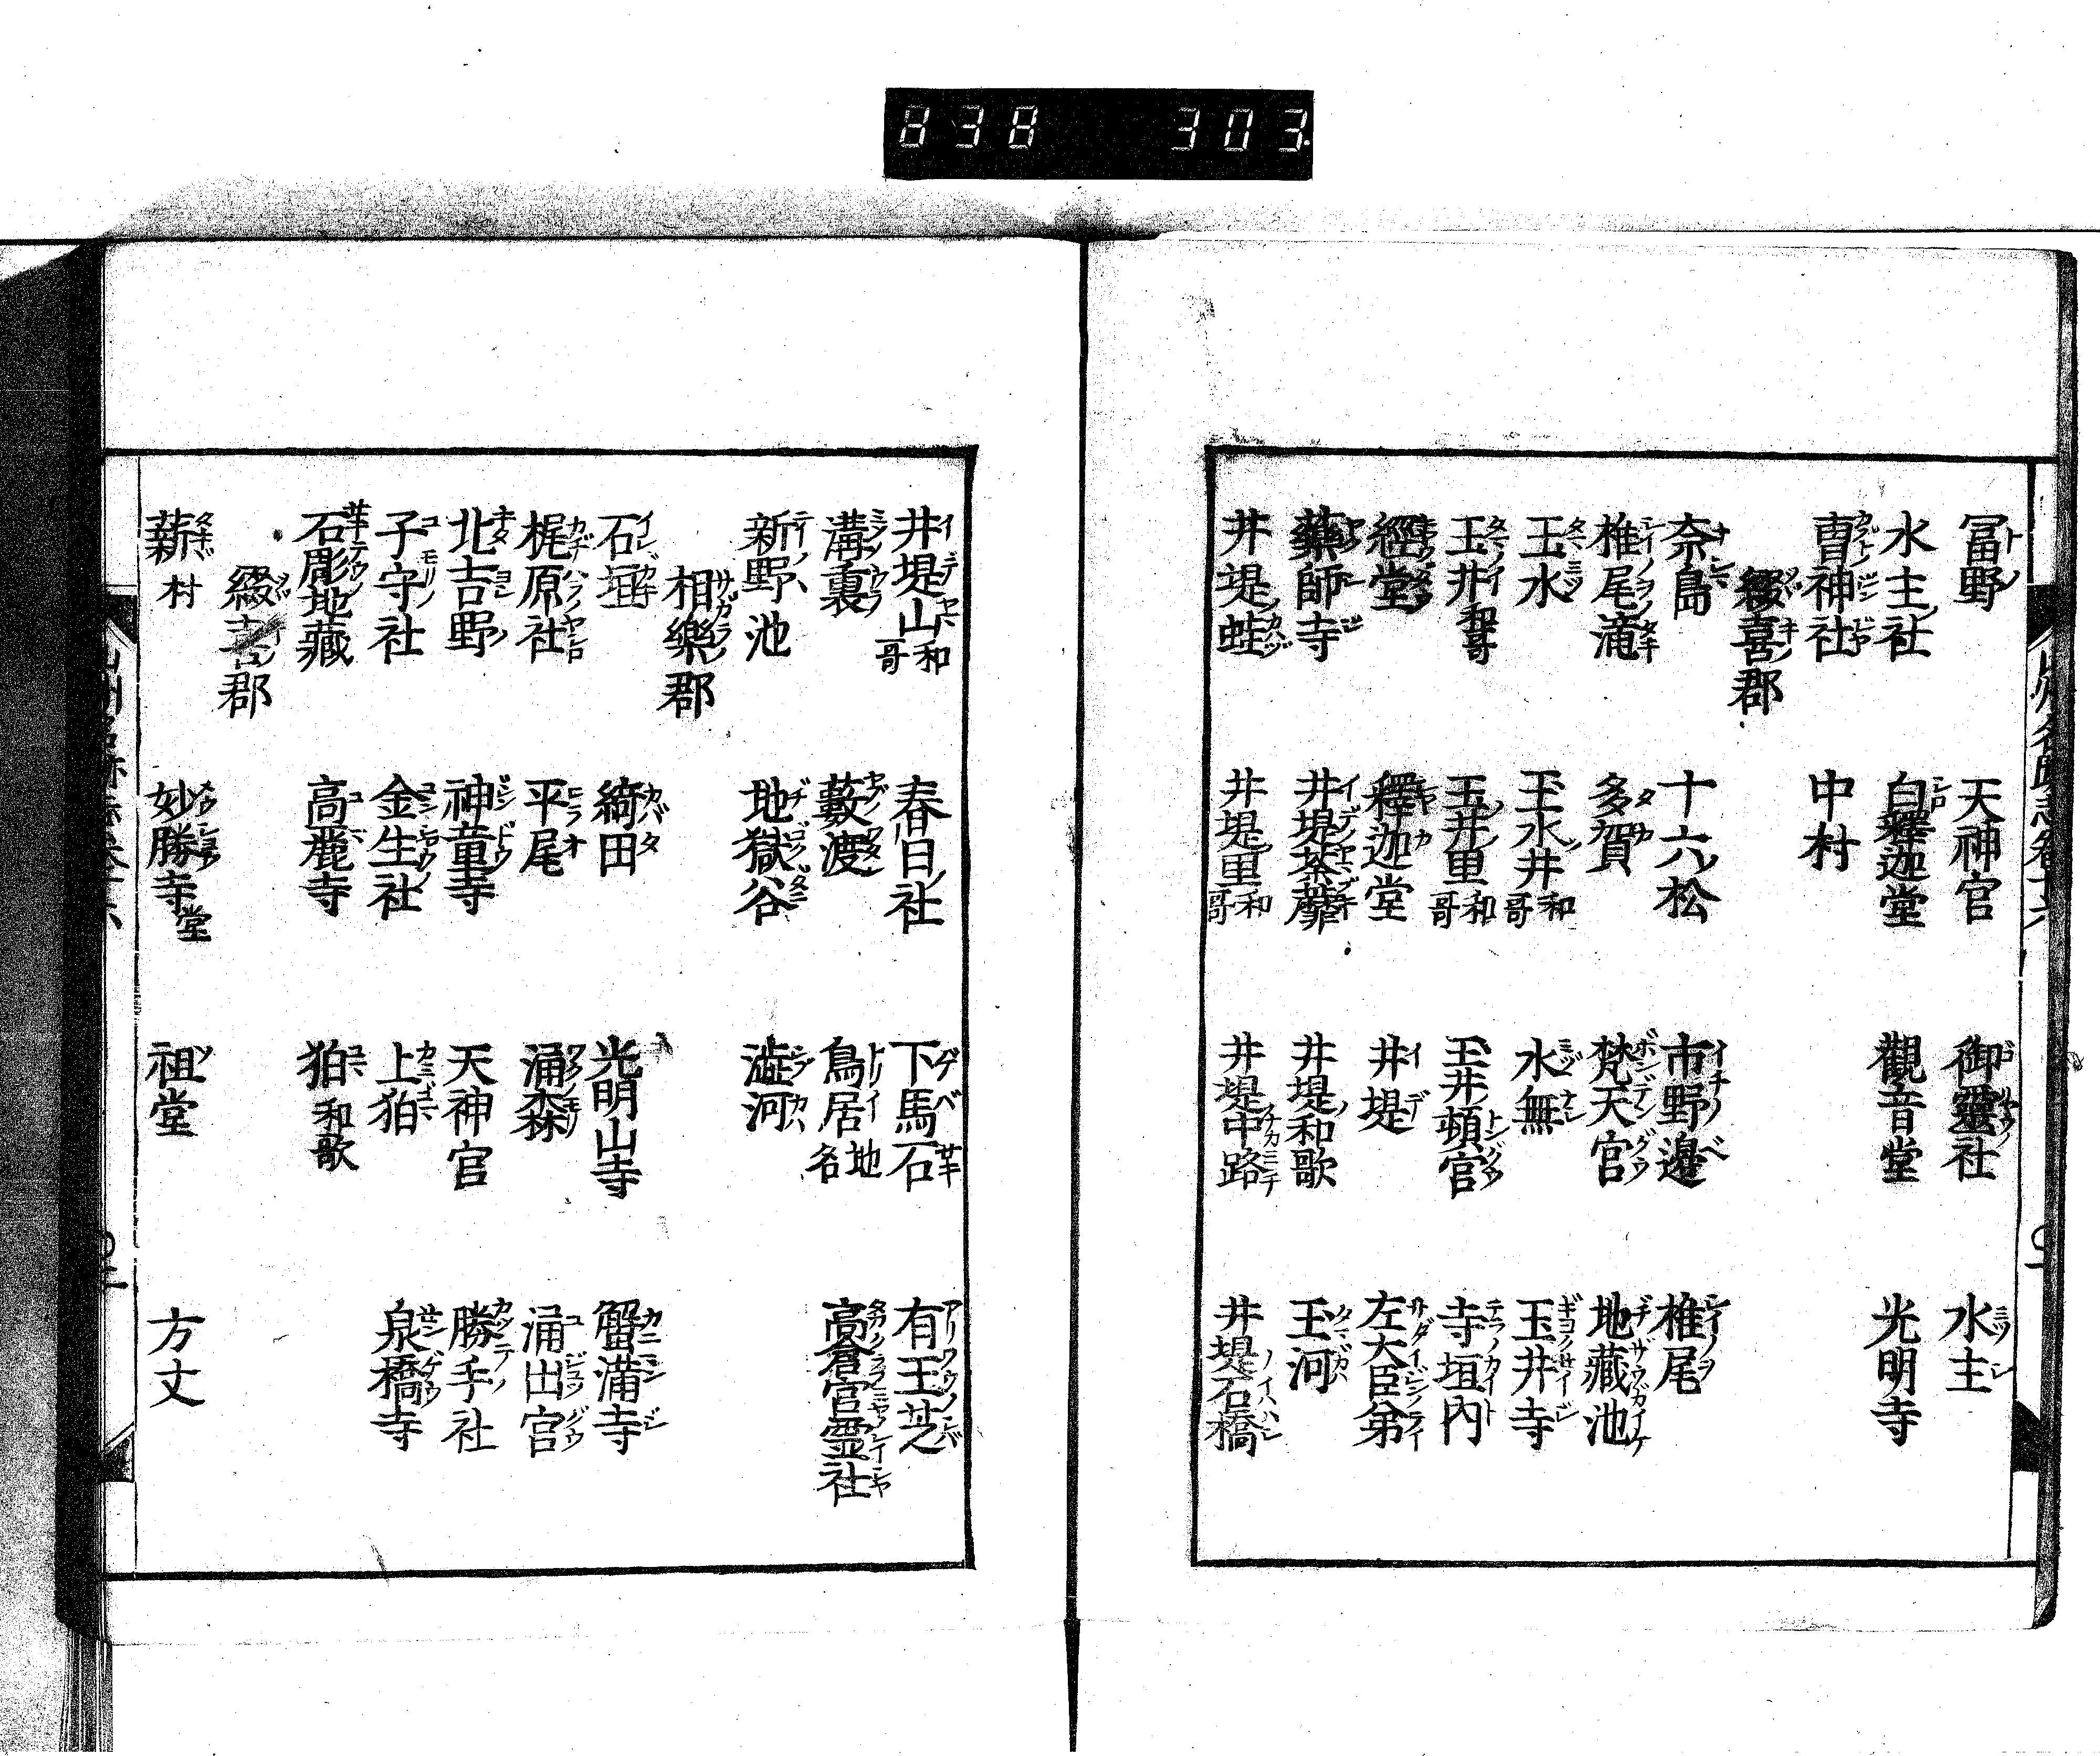 838 303
冨野 天神宮 御靈社 水主
水主社 白釋迦堂 觀音堂 光明寺
曺神社 中村
綴喜郡
奈島 十六松 市野邊 椎尾
椎尾滝 多賀 梵天宮 地藏池
玉水 玉水井和哥 水無 玉井寺
玉井和哥 玉井里和哥 玉井頓宮 寺垣內
經堂 釋迦堂 井堤 左大臣第
藥師寺 井堤荼蘼 井堤和歌 玉河
井堤蛙 井堤里和哥 井堤中路 井堤石橋
井堤山和哥 春日社 下馬石 有王芝
溝裏 藪渡 鳥居地名 高倉宮霊社
新野池 地獄谷 澁河
相樂郡
石垣 綺田 光明山寺 蟹满寺
梶原社 平尾 涌森 涌出宮
北吉野 神童寺 天神宮 勝手社
子守社 金生社 上狛 泉橋寺
石彫地藏 高麗寺 狛和歌
綴喜郡
薪村 妙勝寺堂 祖堂 方丈